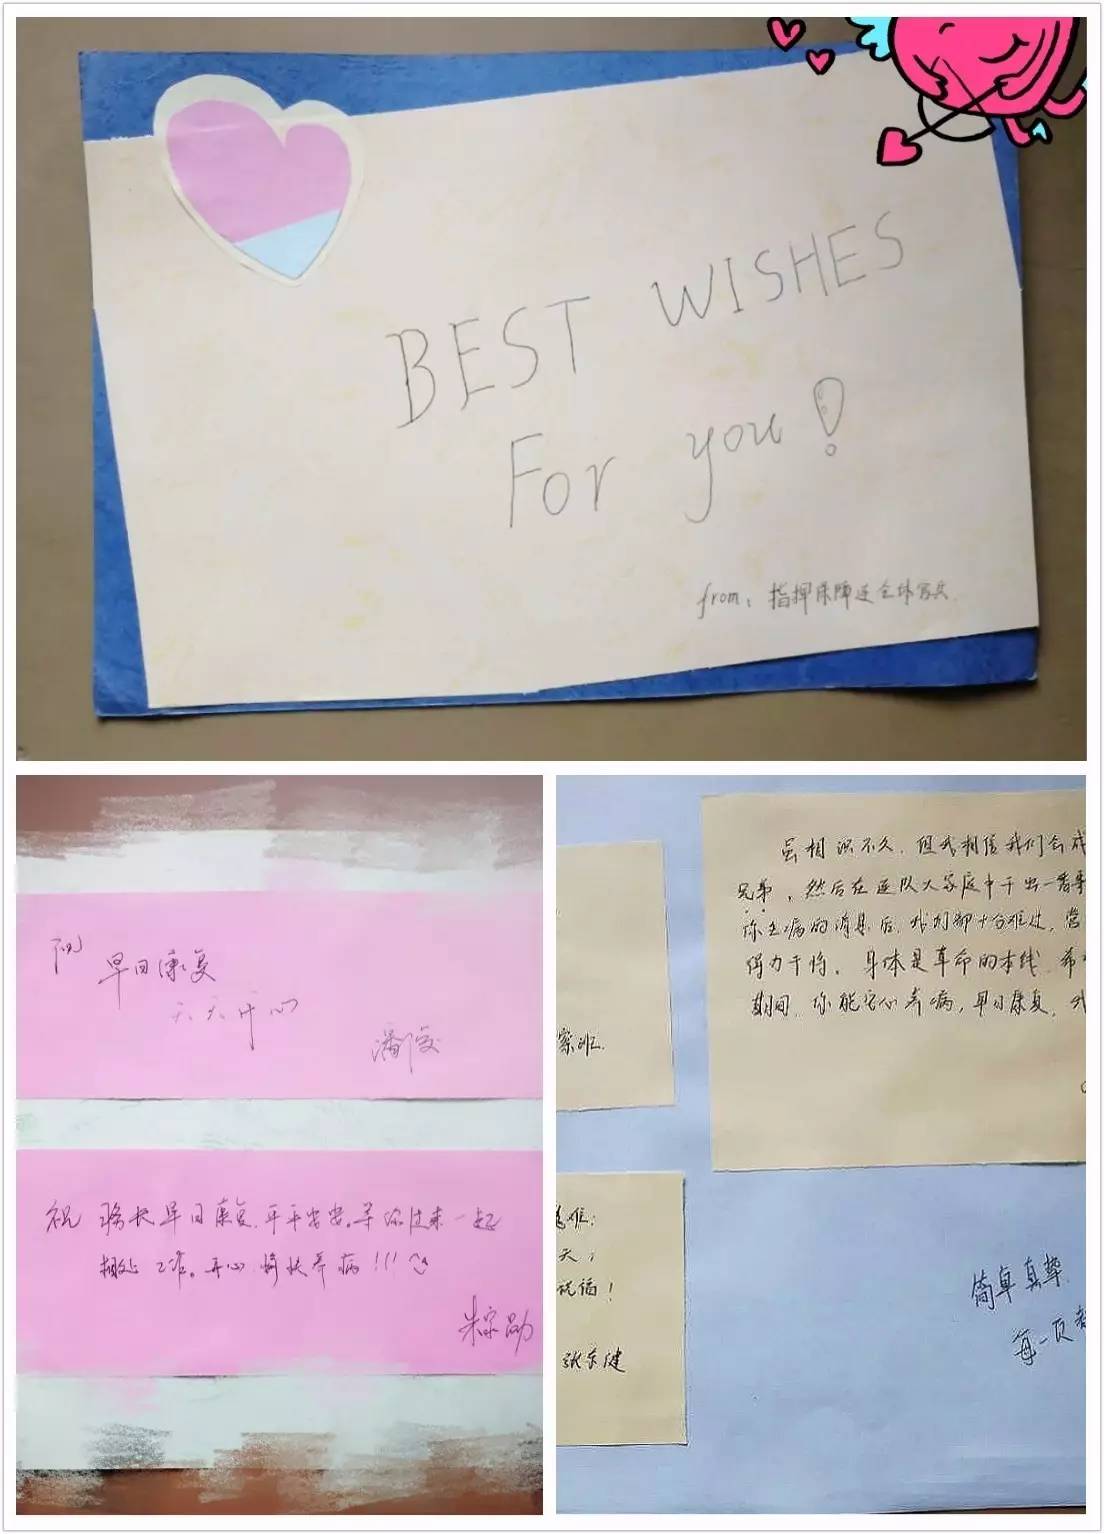 BEST WISHES
For you!
from: 指挥保障连全体官兵
祝
早日康复
天天开心
潘俊
祝 早日康复,平平安安。等你过来一起
相处 工作。开心 愉快养病!!!
虽相识不久,但我相信我们会成
兄弟,然后在连队大家庭中干出一番事
你生病的消息后,我们都十分难过,
得力干将。身体是革命的本钱,希
期间,你能安心养病,早日康复,我
察班.
难;
天;
祝福!
张东健
简单真挚
每一页都